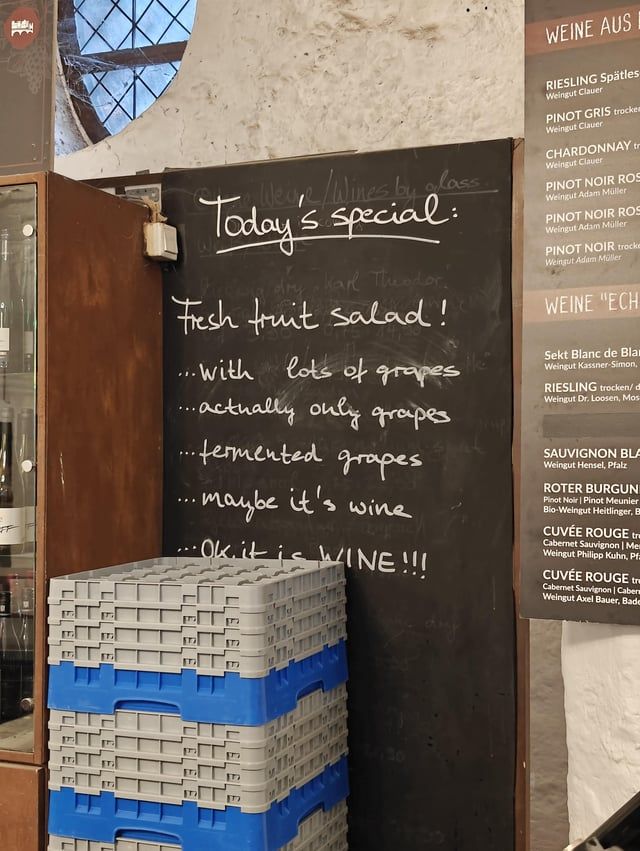 Today's special:
Fresh fruit salad!
...with lots of grapes
...actually only grapes
...fermented grapes
...maybe it's wine
...OK it is WINE!!!
WEINE AUS
RIESLING Spätles
Weingut Clauer
PINOT GRIS trocke
Weingut Clauer
CHARDONNAY tr
Weingut Clauer
PINOT NOIR ROS
Weingut Adam Müller
PINOT NOIR ROS
Weingut Adam Müller
PINOT NOIR trocke
Weingut Adam Müller
WEINE "ECH
Sekt Blanc de Bla
Weingut Kassner-Simon,
RIESLING trocken/ d
Weingut Dr. Loosen, Mos
SAUVIGNON BLA
Weingut Hensel, Pfalz
ROTER BURGUN
Pinot Noir | Pinot Meunier
Bio-Weingut Heitlinger, B
CUVÉE ROUGE tro
Cabernet Sauvignon | Mer
Weingut Philipp Kuhn, Pf
CUVÉE ROUGE tro
Cabernet Sauvignon | Caber
Weingut Axel Bauer, Bade